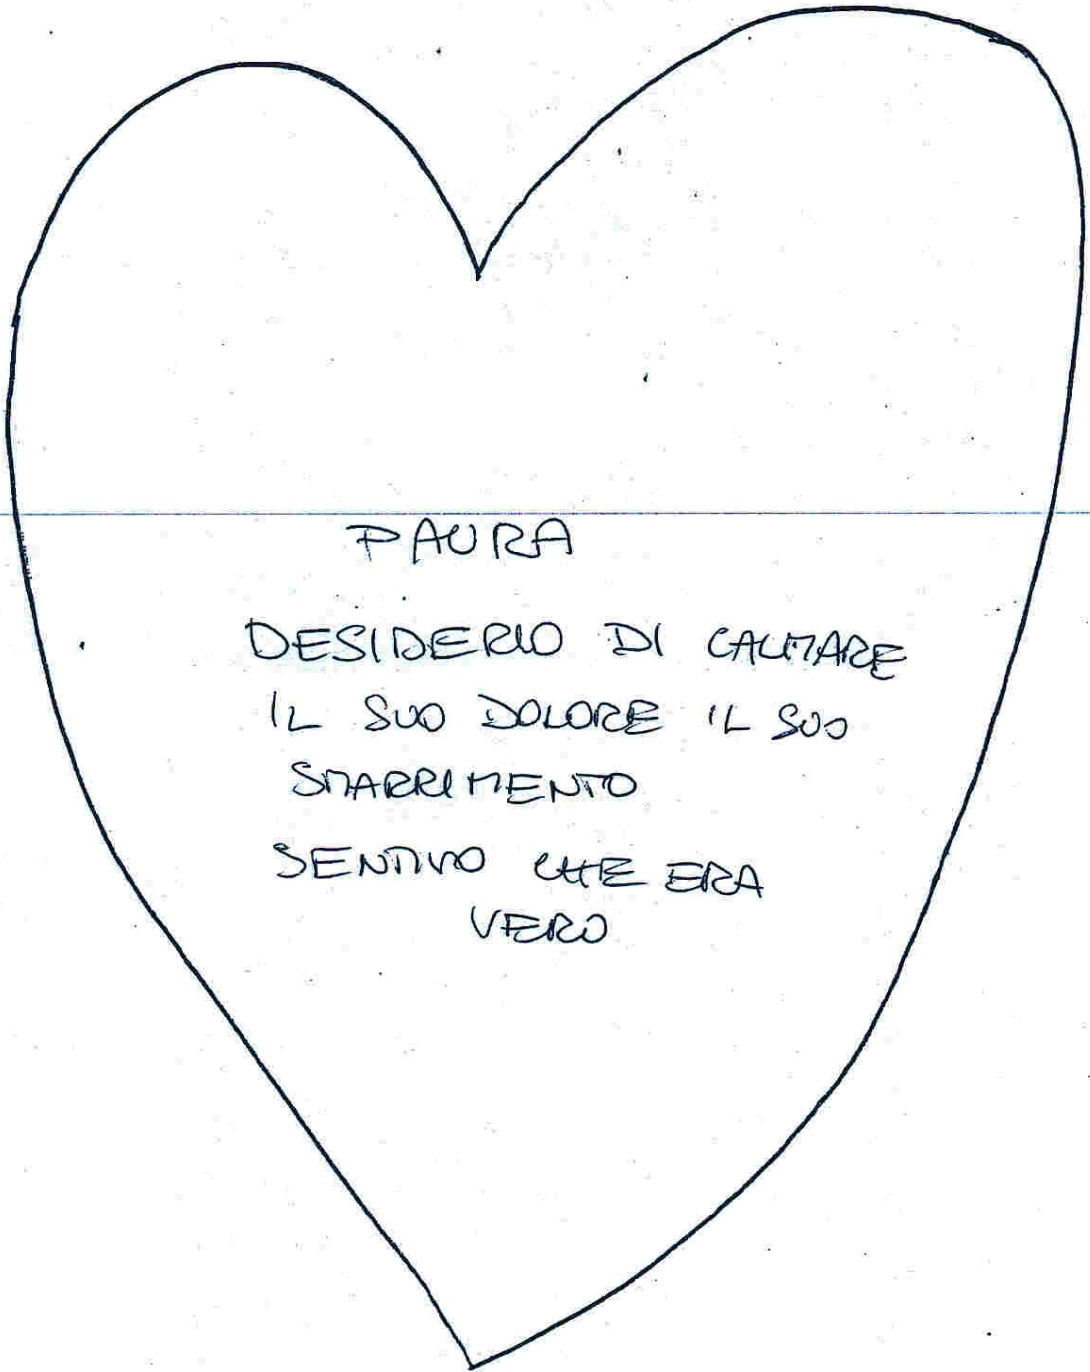 PAURA
DESIDERIO DI CALMARE
IL SUO DOLORE IL SUO
SMARRIMENTO
SENTIVO CHE ERA
VERO